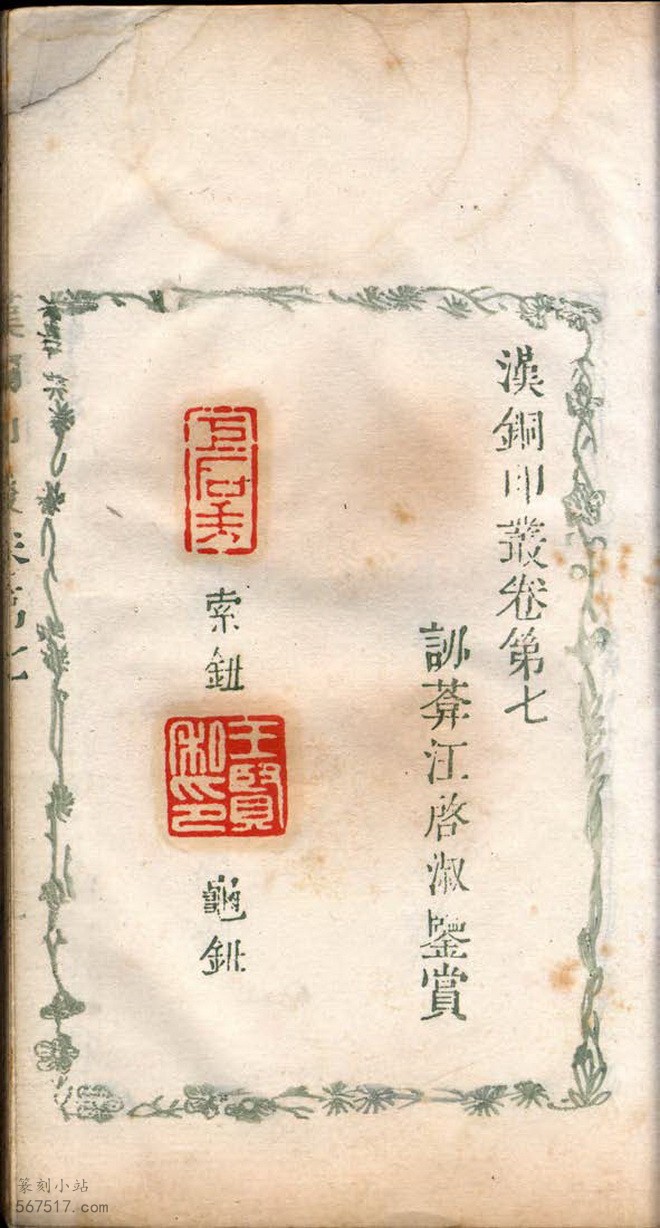 漢銅印叢卷第七
訒葊汪啓淑鑒賞
索鈕
王賢私印
龜鈕
篆刻小站
567517.com